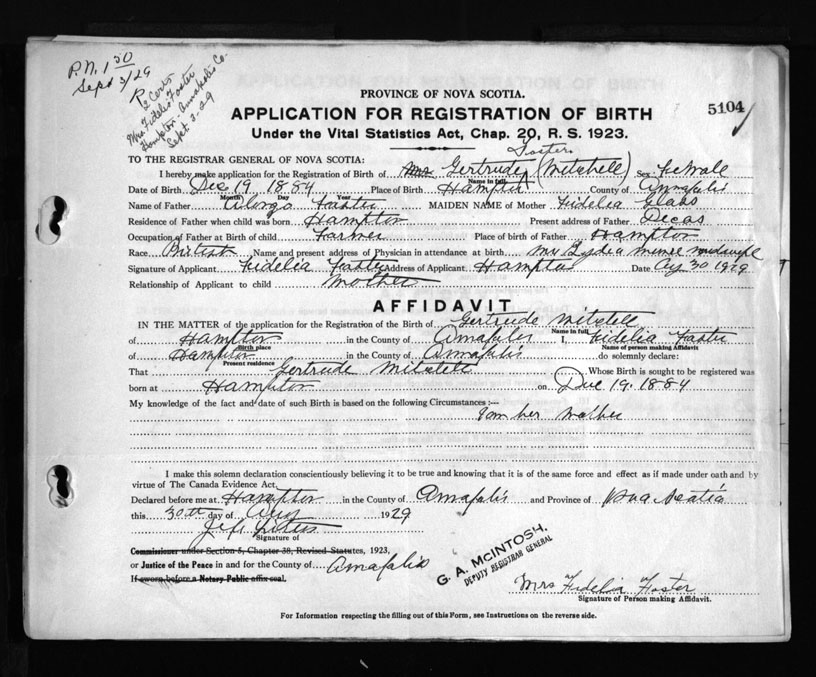 P.N. 1 50
Sept 3/29
2 Certs
Mrs Fidelia Foster
Hampton - Annapolis Co.
Sept 3-29
PROVINCE OF NOVA SCOTIA.
APPLICATION FOR REGISTRATION OF BIRTH
5104
Under the Vital Statistics Act, Chap. 20, R. S. 1923.
Foster
TO THE REGISTRAR GENERAL OF NOVA SCOTIA:
I hereby make application for the Registration of Birth of Mrs Gertrude (Mitchell) Sex Female
Name in full
Date of Birth Dec 19, 1884 Place of Birth Hampton County of Annapolis
Month Day Year
Name of Father Alonzo Foster MAIDEN NAME of Mother Fidelia
Residence of Father when child was born Hampton Present address of Father
Occupation of Father at Birth of child Farmer Place of birth of Father Hampton
Race British Name and present address of Physician in attendance at birth Mrs Lydia midwife
Signature of Applicant Fidelia Foster Address of Applicant Hampton Date Aug 30 1929
Relationship of Applicant to child Mother
AFFIDAVIT
IN THE MATTER of the application for the Registration of the Birth of Gertrude Mitchell
Name in full
of Hampton in the County of Annapolis I, Fidelia Foster
Birth place Name of person making Affidavit
of Hampton in the County of Annapolis do solemnly declare:
Present residence
That Gertrude Mitchell Whose Birth is sought to be registered was
born at Hampton on Dec 19, 1884
My knowledge of the fact and date of such Birth is based on the following Circumstances:—
I am her mother
I make this solemn declaration conscientiously believing it to be true and knowing that it is of the same force and effect as if made under oath and by
virtue of The Canada Evidence Act.
Declared before me at Hampton in the County of Annapolis and Province of Nova Scotia
this 30th day of Aug 1929
Signature of
Commissioner under Section 5, Chapter 38, Revised Statutes, 1923,
or Justice of the Peace in and for the County of Annapolis
If sworn before a Notary Public affix seal.
G. A. McINTOSH,
DEPUTY REGISTRAR GENERAL
Mrs Fidelia Foster
Signature of Person making Affidavit.
For Information respecting the filling out of this Form, see Instructions on the reverse side.